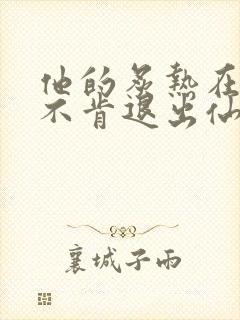 他的炙热在
不肯退出仙
襄城子雨